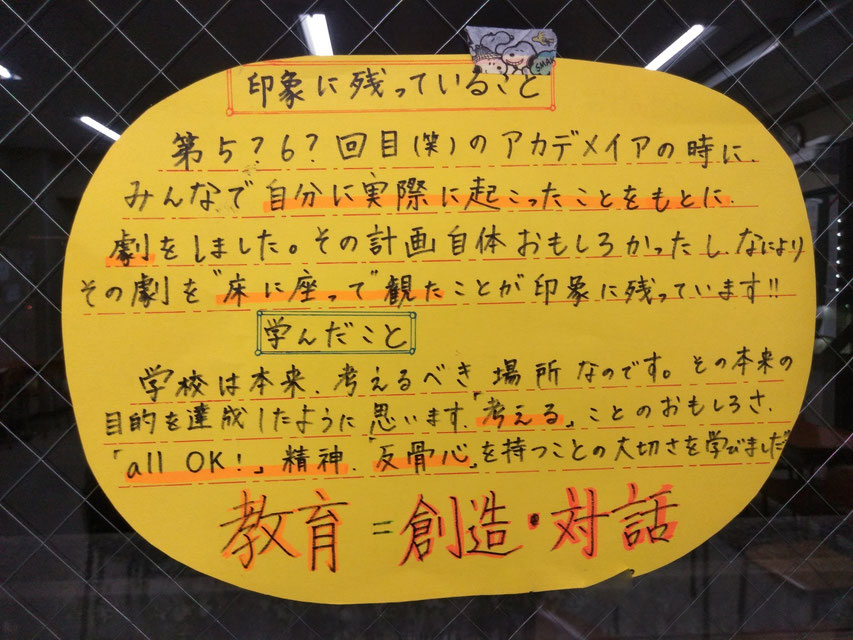 印象に残っていること
第5?6?回目(笑)のアカデメイアの時に、
みんなで自分に実際に起こったことをもとに
劇をしました。その計画自体おもしろかったし、なにより
その劇を"床に座って"観たことが印象に残っています!!
学んだこと
学校は本来、考えるべき場所なのです。その本来の
目的を達成したように思います。「考える」ことのおもしろさ、
「all OK!」精神、「反骨心」を持つことの大切さを学びました
教育=創造・対話